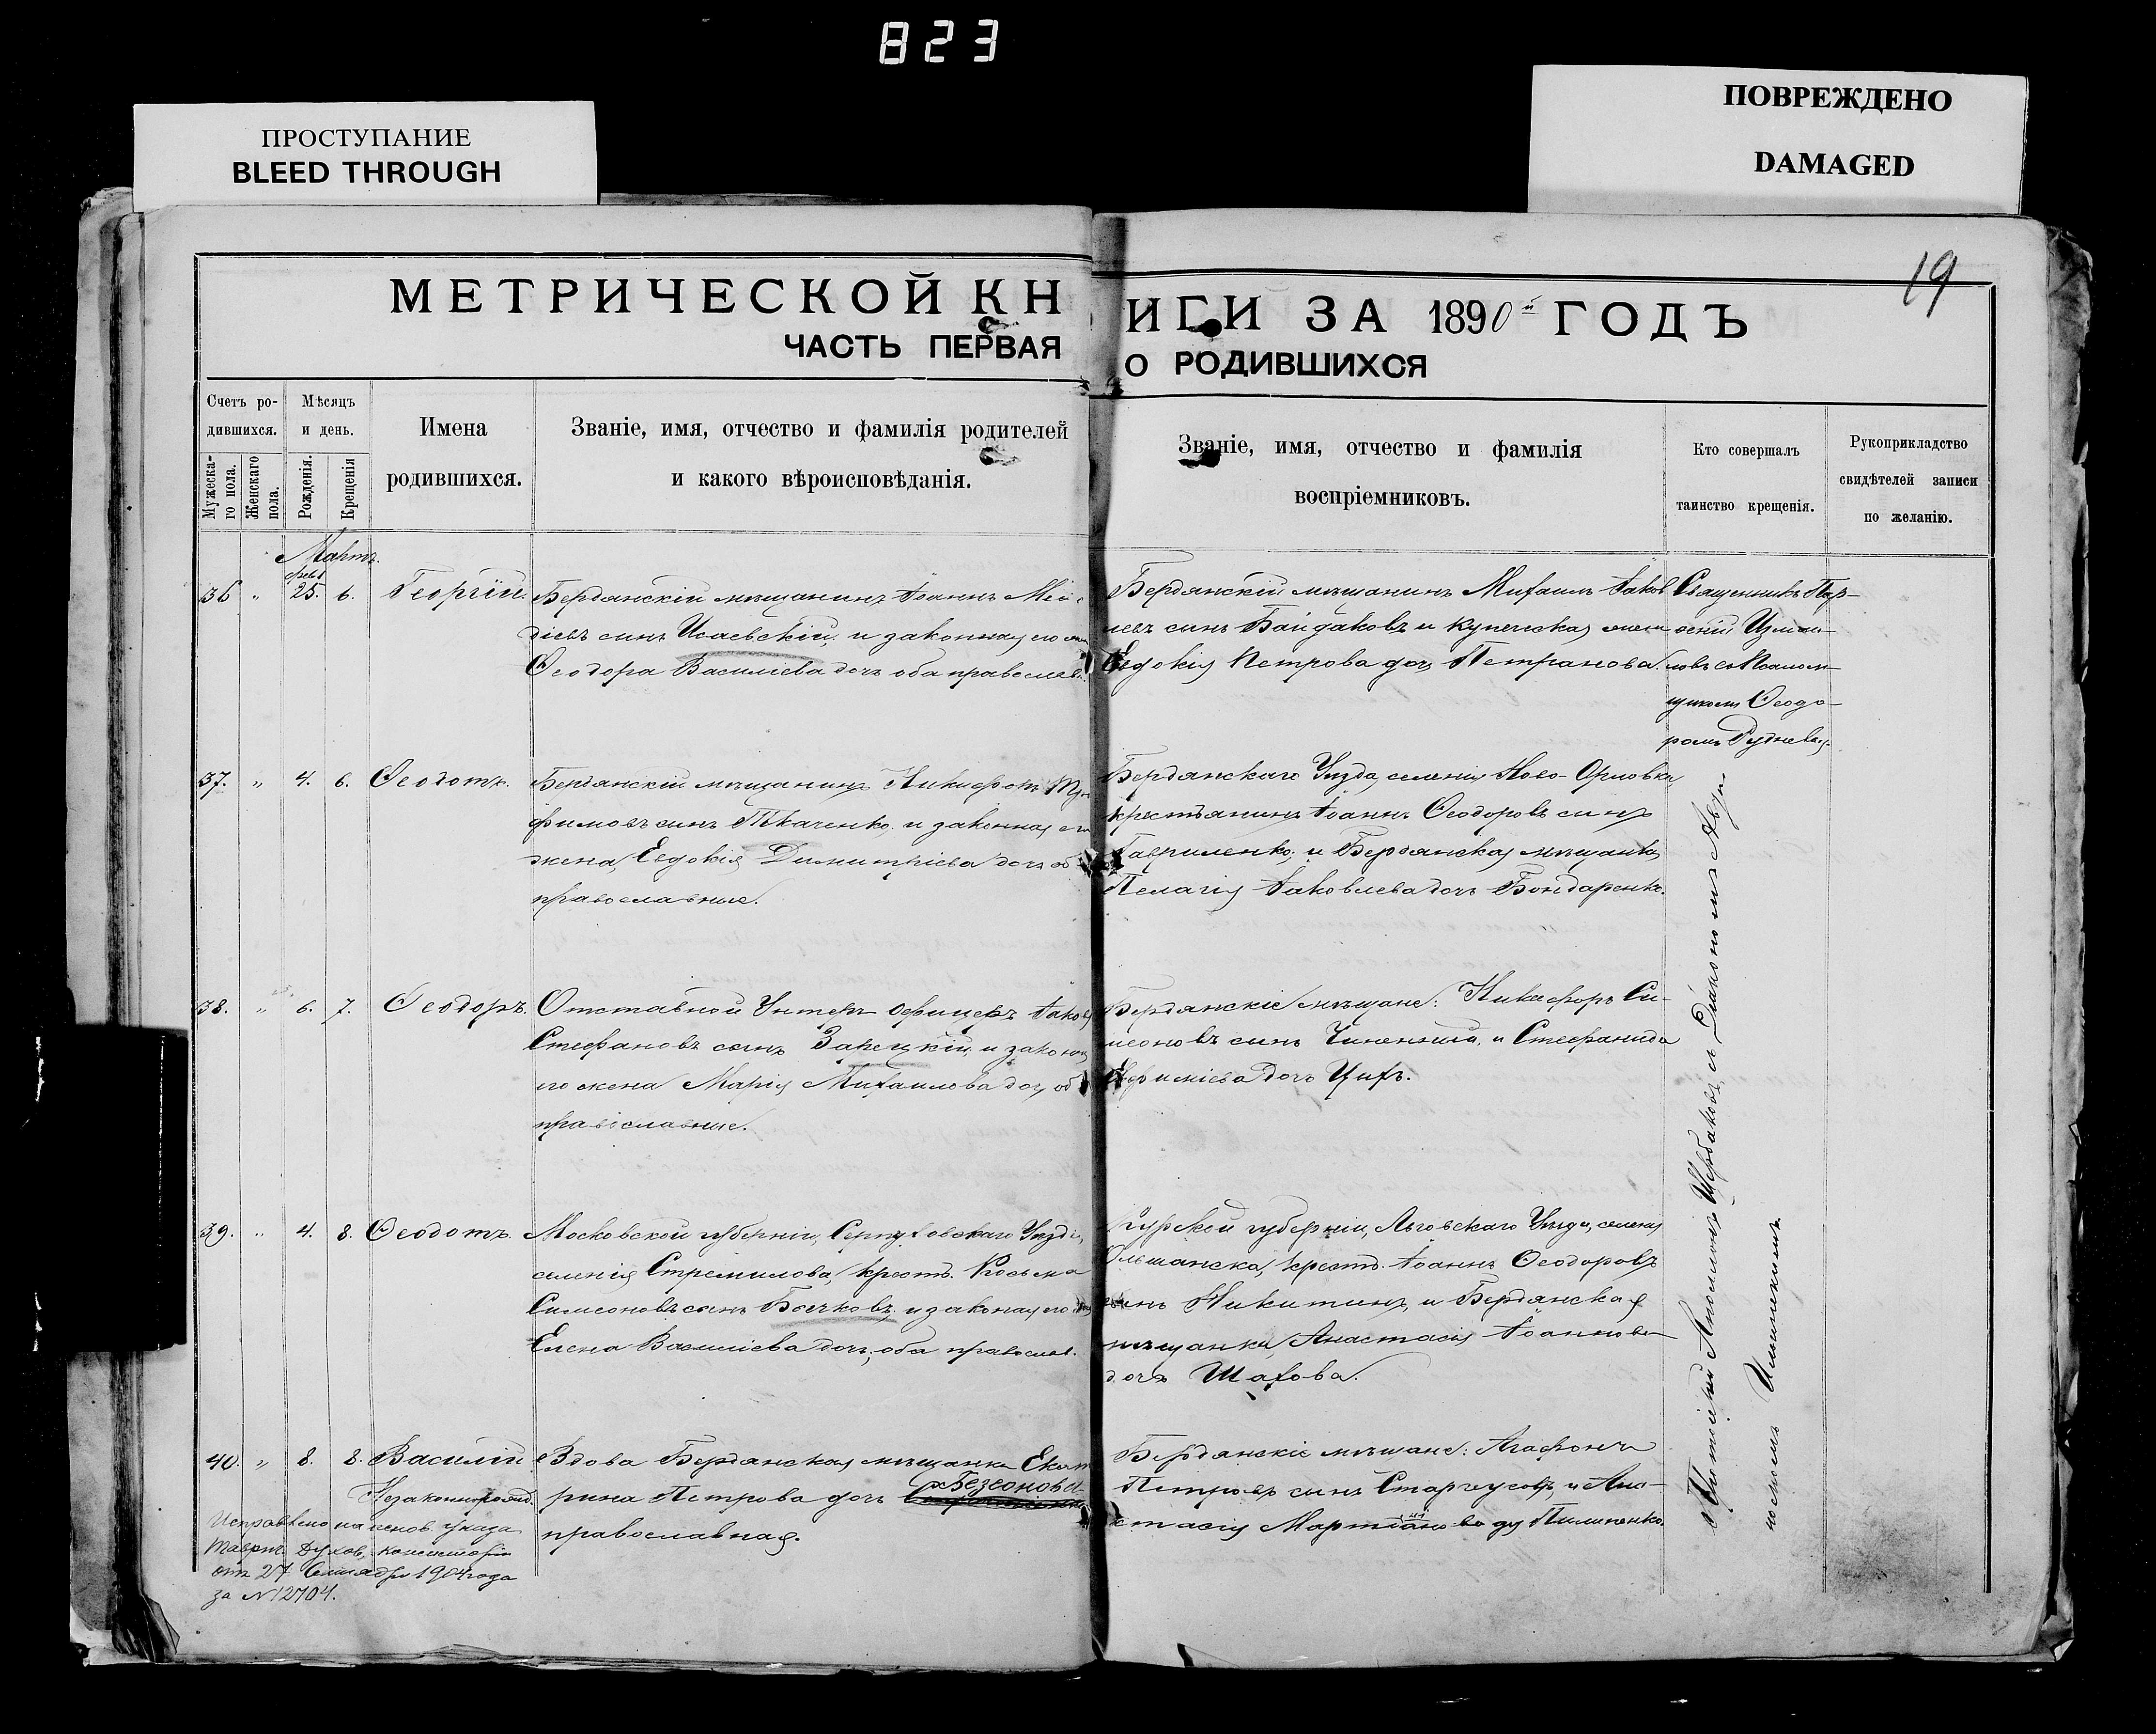 823
ПРОСТУПАНИЕ
BLEED THROUGH
ПОВРЕЖДЕНО
DAMAGED
19
МЕТРИЧЕСКОЙ КН
ИГИ ЗА 1890й ГОДЪ
ЧАСТЬ ПЕРВАЯ
О РОДИВШИХСЯ
Счетъ ро-
дившихся.
Мужеска-
го пола.
Женскаго
пола.
Мѣсяцъ
и день.
Рожденія.
Крещенія
Имена
родившихся.
Званіе, имя, отчество и фамилія родителей
и какого вѣроисповѣданія.
Званіе, имя, отчество и фамилія
воспріемниковъ.
Кто совершалъ
таинство крещенія.
Рукоприкладство
свидѣтелей записи
по желанію.
Мартъ.
36 „ 25. 6. Георгій.
Бердянскій мѣщанинъ Іоаннъ
діевъ сынъ Исаевскій, и законная его
Ѳеодора Василіева дочь оба православ.
Бердянскій мѣщанинъ Михаилъ Іаков
левъ сынъ Байдаковъ и купеческая жена
Евдокія Петрова дочь Петранова.
Священникъ Пар-
ѳеній Измаи-
ловъ съ Псаломщ-
щикомъ Ѳеодо-
ромъ Рудневым
37. „ 4. 6. Ѳеодотъ.
Бердянскій мѣщанинъ Никифоръ Тр
фимовъ сынъ Ткаченко и законная его
жена, Евдокія Димитріева дочь об
православные.
Бердянскаго Уѣзда, селенія Ново-Орловки,
крестьянинъ Іоаннъ Ѳеодоровъ сынъ
Гавриленко, и Бердянская мѣщанка,
Пелагія Іаковлева дочь Бондаренко.
38. „ 6. 7. Ѳеодоръ.
Отставной Унтеръ офицеръ Іаковъ
Стефановъ сынъ Зарецкій и законная
его жена Марія Михаилова дочь, об
православные.
Бердянскіе мѣщане: Никифоръ Си-
меоновъ сынъ и Стефанида
Евфиміева дочь Цихъ.
39. „ 4. 8. Ѳеодотъ.
Московской губерніи, Серпуховскаго Уѣзда,
селенія Стремилова, крест. Косьма
Симеоновъ сынъ Бочковъ и законая его
Елена Василіева дочь, оба православ.
Курской губерніи, Льговскаго Уѣзда, селенія
Ольшанска, крест. Іоаннъ Ѳеодоровъ
сынъ Никитинъ, и Бердянская
мѣщанка, Анастасія Іоаннова
дочь Шахова.
40. „ 8. 8. Василій
Незаконнорожд.
Вдова Бердянская мѣщанка Екат
рина Петрова дочь Безсонова
православная.
Бердянскіе мѣщане: Агафонъ
Петровъ сынъ и Ана-
стасія Мартіанова дч Пилипенко.
Исправлено на основ. указа
Таврич. Духов. Консисторіи
отъ 27 Сентября 1904 года
за №12704.
Протоіерей Щербаковъ, съ Діакономъ